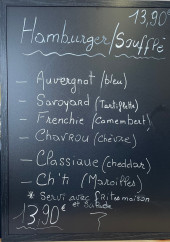 13,90€
Hamburger/Soufflé
- Auvergnat (bleu)
- Savoyard (Tartiflette)
- Frenchie (camembert)
- Chavrou (chèvre)
- Classique (cheddar)
- Ch'ti (Maroilles)
* Servi avec FRITES maison
13,90€ et Salade